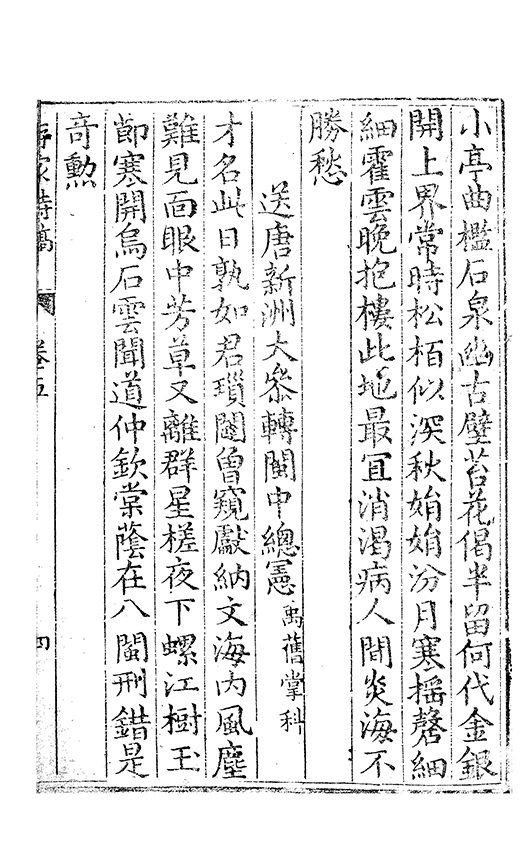 小亭曲檻石泉幽古壁苔花偈半留何代金銀
開上界常時松栢似深秋娟娟汾月寒揺磬細
細霍雲晚抱樓此地最宜消渴病人間炎海不
勝愁
送唐新洲大叅轉閩中總憲萬舊掌科
才名此日孰如君瑣闥曾窺獻納文海內風塵
難見面眼中芳草又離群星槎夜下螺江樹玉
節寒開烏石雲聞道仲欽棠蔭在八閩刑錯是
奇勲
詩稿 卷五 四